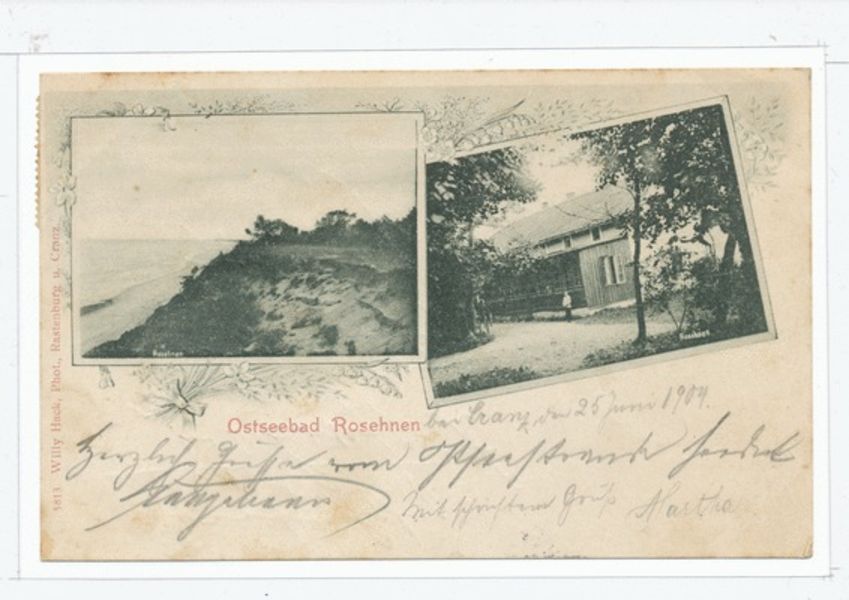 Rosehnen
Rosehnen
5813 Willy Hack, Phot., Rastenburg u. Cranz.
Ostseebad Rosehnen bei Cranz, den 25 Juni 1904.
Herzlich Grüsse vom Ostseestrande sendet
Mit schönstem Gruß Martha